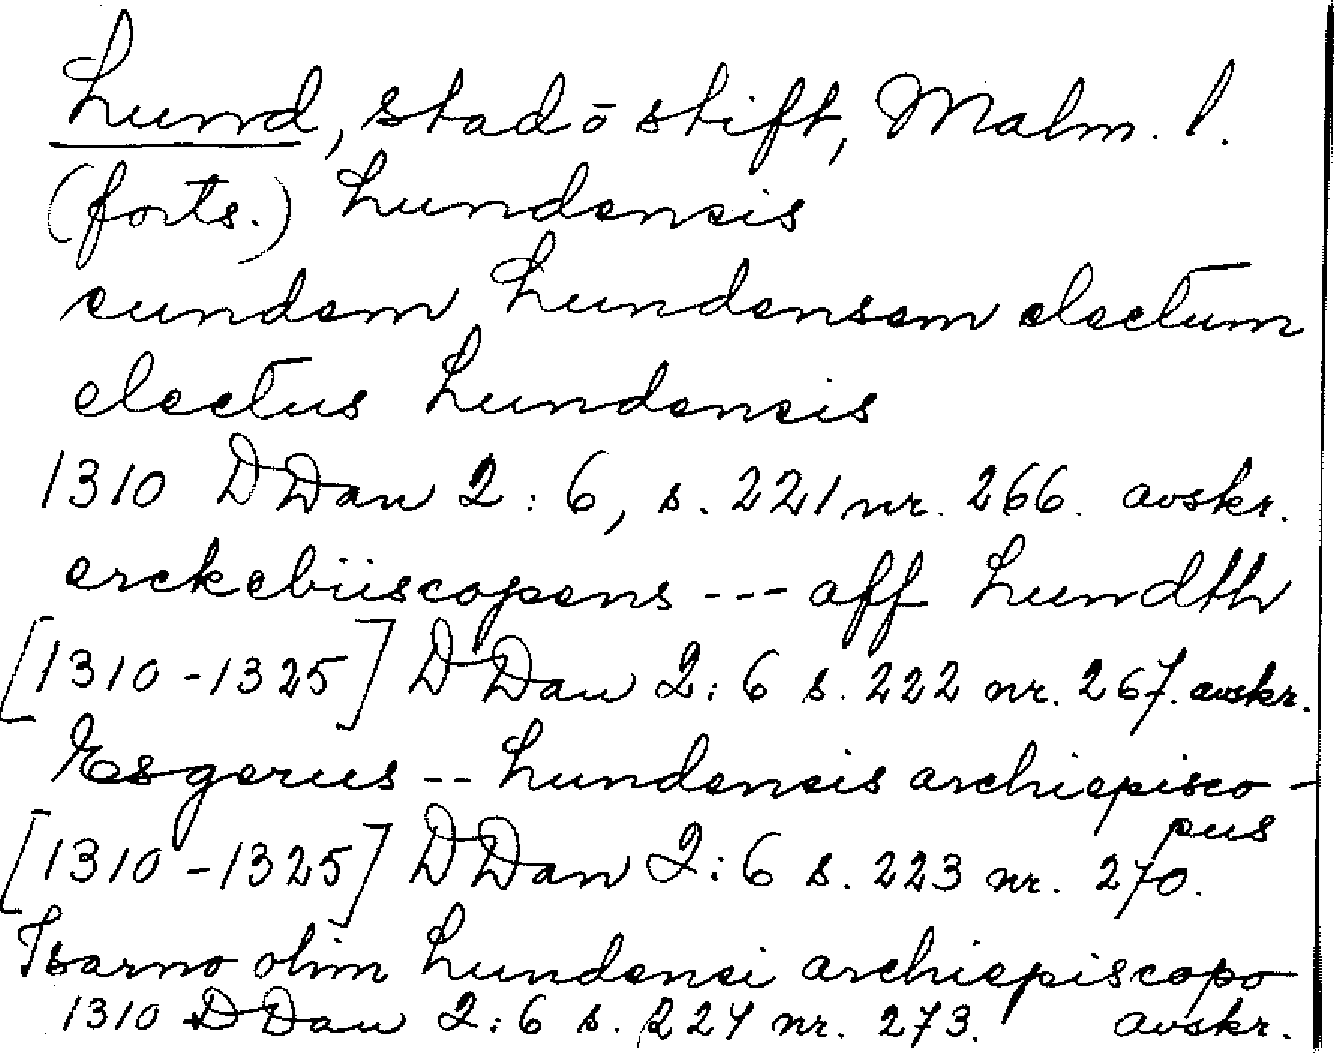 Lund, stad o stift, Malm. l.
(forts.) Lundensis
eundem Lundensem electum
electus Lundensis
1310 DDan 2:6, s. 221 nr. 266. avskr.
erckebiiscopens --- aff Lundth
[1310-1325] DDan 2:6 s. 222 nr. 267. avskr.
Esgerus -- Lundensis archiepisco-
pus
[1310-1325] DDan 2:6 s. 223 nr. 270.
Isarno olim Lundensi archiepiscopo
1310 DDan 2:6 s. 224 nr. 273. avskr.